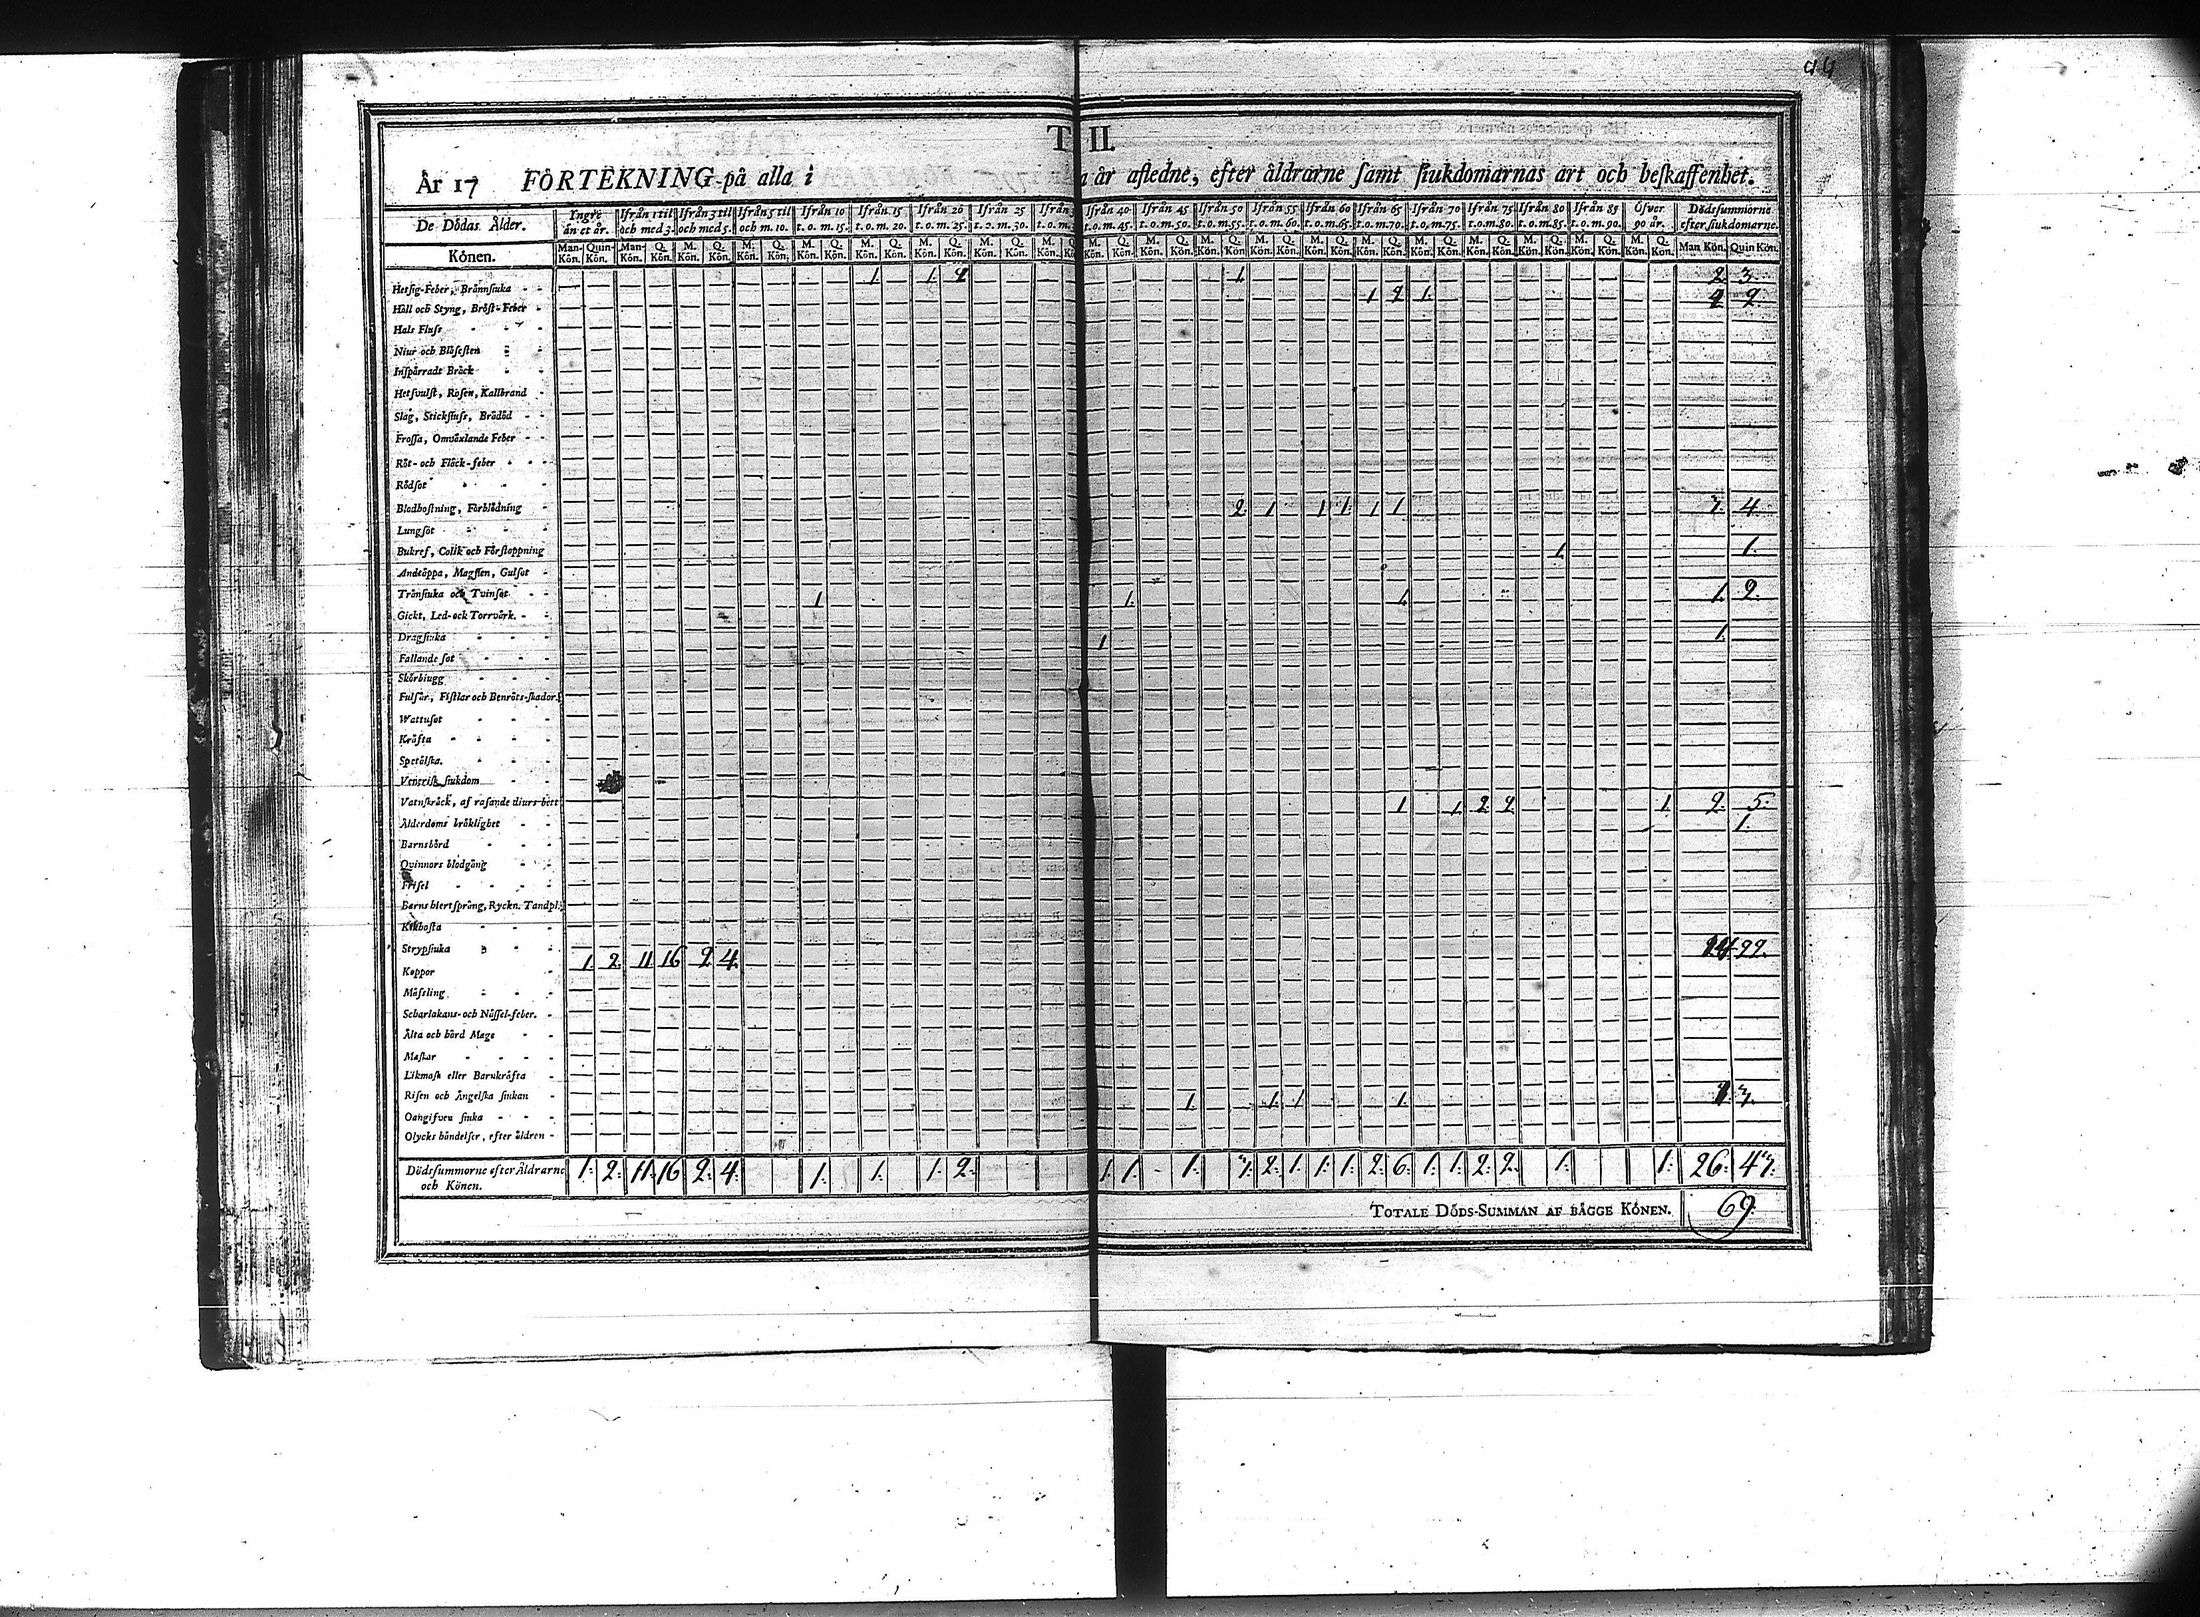 44
T II.
År 17 FÖRTEKNING på alla i a år afledne, efter åldrarne samt siukdomarnas art och beskaffenhet.
De Dödas Ålder. Yngre än et år. Ifrån 1 til och med 3. Ifrån 3 til och med 5. Ifrån 5 til och m. 10. Ifrån 10 t. o. m. 15. Ifrån 15 t. o. m. 20. Ifrån 20 t. o. m. 25. Ifrån 25 t. o. m. 30. Ifrån Ifrån 40 t. o. m. 45. Ifrån 45 t. o. m. 50. Ifrån 50 t. o. m. 55. Ifrån 55 t. o. m. 60. Ifrån 60 t. o. m. 65. Ifrån 65 t. o. m. 70. Ifrån 70 t. o. m. 75. Ifrån 75 t. o. m. 80. Ifrån 80 t. o. m. 85. Ifrån 85 t. o. m. 90. Öfver 90 år. Dödssummorne efter siukdomarne.
Könen. Man-Kön. Quin-Kön. Man-Kön. Q. Kön. M. Kön. Q. Kön. M. Kön. Q. Kön. M. Kön. Q. Kön. M. Kön. Q. Kön. M. Kön. Q. Kön. M. Kön. Q. Kön. M. Kön. Q. M. Kön. Q. Kön. M. Kön. Q. Kön. M. Kön. Q. Kön. M. Kön. Q. Kön. M. Kön. Q. Kön. M. Kön. Q. Kön. M. Kön. Q. Kön. M. Kön. Q. Kön. M. Kön. Q. Kön. M. Kön. Q. Kön. M. Kön. Q. Kön. Man Kön. Quin Kön.
Hetsig-Feber, Brännsiuka 1. 1. 2 1. 2. 3.
Håll och Styng, Bröst-Feber 1 2 1. 2 2.
Hals Fluss
Niur och Blåsesten
Inspärradt Bråck
Hetsvulst, Rosen, Kallbrand
Slag, Stickfluss, Brådöd
Frossa, Omväxlande Feber
Röt- och Fläck-feber
Rödsot
Blodhostning, Förblödning 2. 1 1 1. 1 1 3. 4.
Lungsot
Bukref, Colik och Förstoppning 1. 1.
Andtäppa, Magsten, Gulsot
Trånsiuka och Tvinsot 1 1. 1. 1. 2.
Gickt, Led- och Torrvärk.
Dragsiuka 1 1.
Fallande sot
Skörbiugg
Fulsår, Fistlar och Benröts-skador.
Wattusot
Kräfta
Spetälska.
Venerisk siukdom
Vatnskräck, af rasande diurs bett 1. 1. 2. 2. 1. 2. 5.
Ålderdoms bräklighet 1.
Barnsbörd
Qvinnors blodgång
Frisel
Barns hiertsprång, Ryckn. Tandpl.
Kikhosta
Strypsiuka 14 22.
Koppor 1. 2. 11 16 2 4.
Mässling
Scharlakans- och Nässel-feber.
Älta och hård Mage
Maskar
Likmask eller Barnkräfta
Risen och Ängelska siukan 1 3.
Oangifven siuka 1. 1. 1 1.
Olycks händelser, efter åldren
Dödssummorne efter Åldrarne och Könen. 1. 2. 11. 16 2. 4. 1. 1. 1. 2. 1. 1. 1. 3. 2. 1. 1. 1. 2. 6. 1. 1. 2. 2. 1. 1. 26. 43.
TOTALE DÖDS-SUMMAN AF BÄGGE KÖNEN. 69.